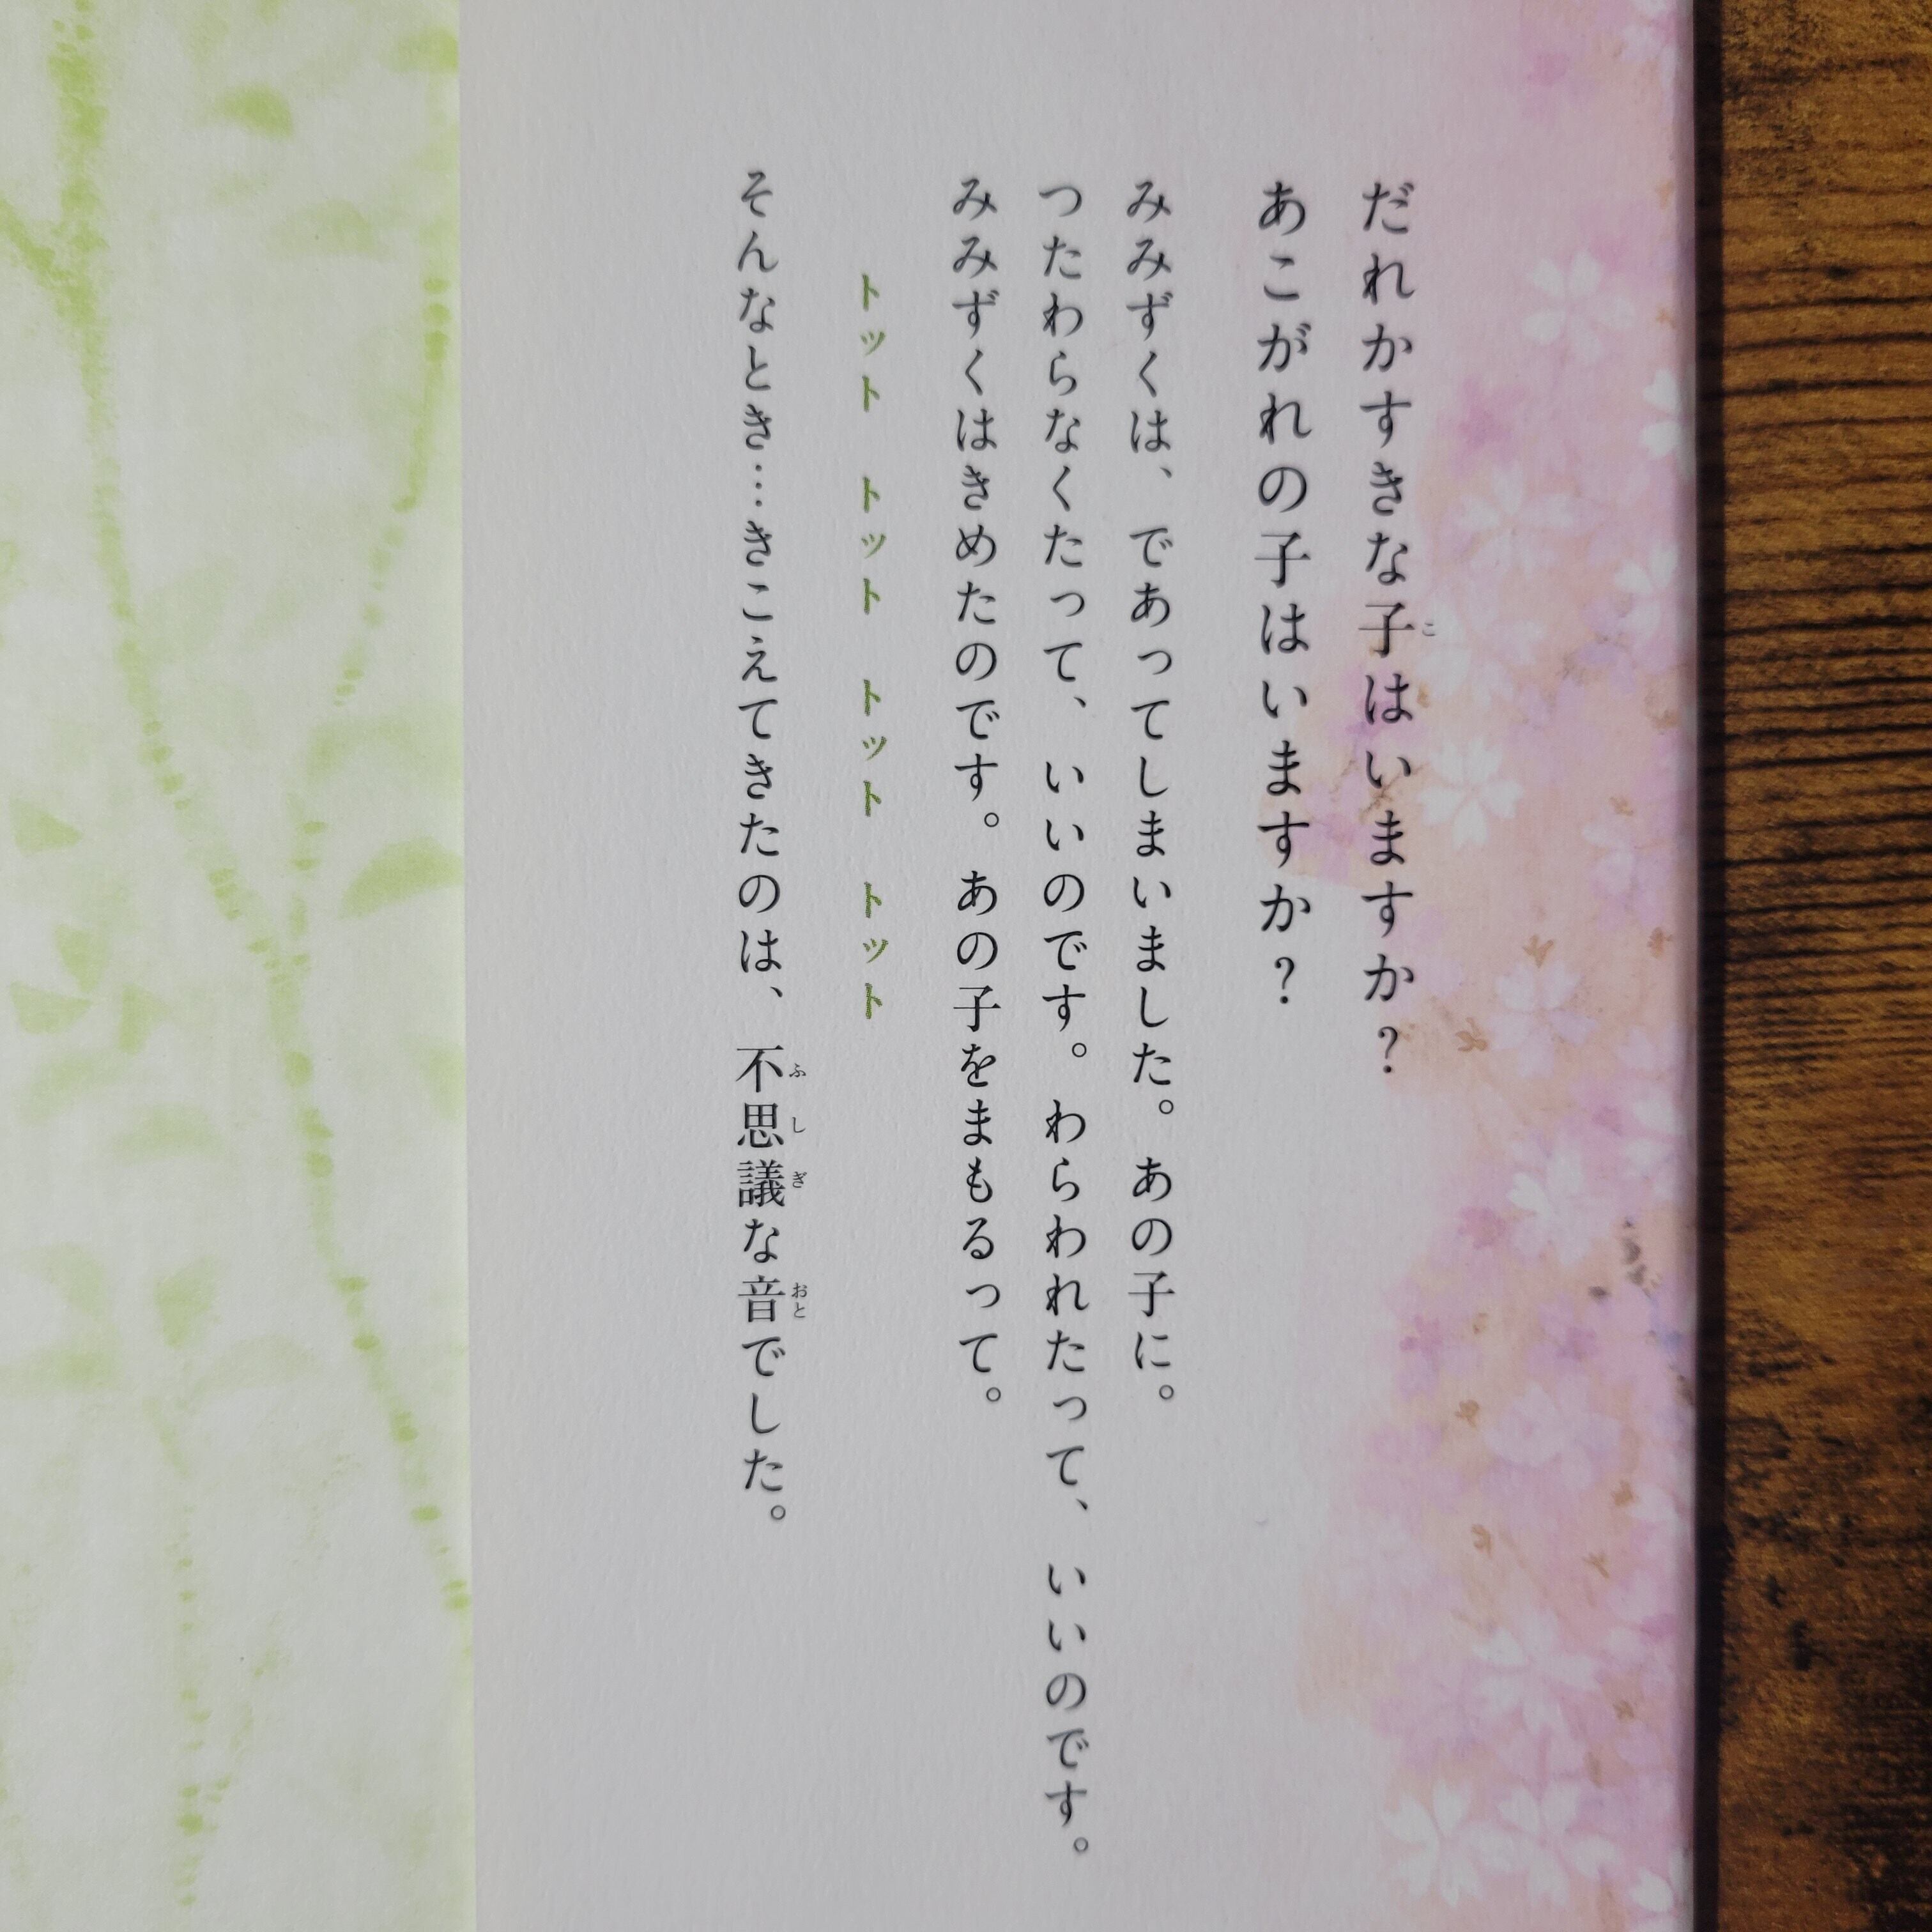 だれかすきな子はいますか？
あこがれの子はいますか？
みみずくは、であってしまいました。あの子に。
つたわらなくたって、いいのです。わらわれたって、いいのです。
みみずくはきめたのです。あの子をまもるって。
トット　トット　トット　トット
そんなとき…きこえてきたのは、不思議な音でした。